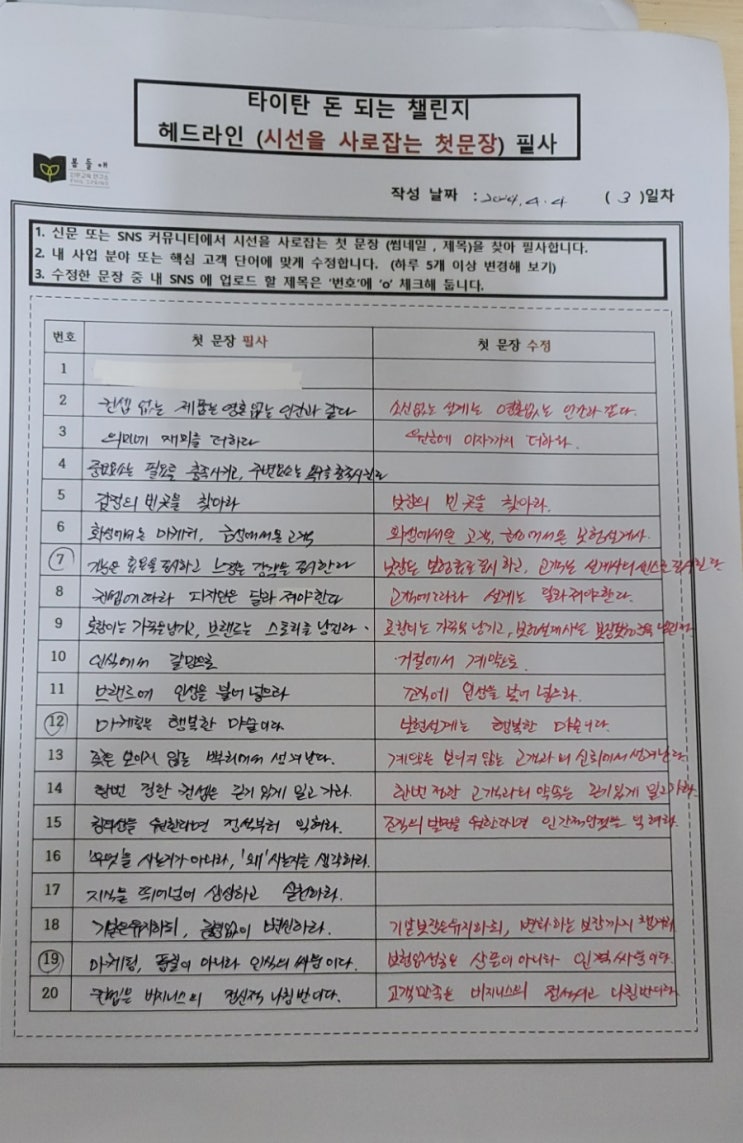 타이탄 돈 되는 챌린지
헤드라인 (시선을 사로잡는 첫문장) 필사
봄들애
작성 날짜 : 2024. 4. 4 ( 3 )일차
1. 신문 또는 SNS 커뮤니티에서 시선을 사로잡는 첫 문장 (썸네일 , 제목)을 찾아 필사합니다.
2. 내 사업 분야 또는 핵심 고객 단어에 맞게 수정합니다. (하루 5개 이상 변경해 보기)
3. 수정한 문장 중 내 SNS 에 업로드 할 제목은 '번호'에 'o' 체크해 둡니다.
번호 첫 문장 필사 첫 문장 수정
1
2 컨셉 없는 제품은 영혼 없는 인간과 같다 소신없는 설계는 영혼없는 인간과 같다.
3 의미에 재미를 더하라 원금에 이자까지 더하라.
4 중요요소는 필요를 충족시키고, 주변요소는 욕구를 충족시킨다
5 감정의 빈 곳을 찾아라 보장의 빈 곳을 찾아라.
6 화성에서온 마케터, 금성에서온 고객 화성에서온 고객, 금성에서온 보험설계사.
7 기능은 효용을 표시하고 느낌은 감각을 표현한다 보험료로 표시하고, 고객은 설계사의
8 컨셉에따라 디자인은 달라져야한다 고객에따라 설계는 달라져야한다.
9 호랑이는 가죽을남기고, 브랜드는 스토리를 남긴다. 호랑이는 가죽을 남기고, 보험설계사는
10 인식에서 갈망으로 거절에서 계약으로.
11 브랜드에 인성을 불어 넣으라 조직에 인성을 불어 넣으라.
12 마케팅은 행복한 마술이다. 보험설계는 행복한 마술이다.
13 꽃은 보이지 않는 뿌리에서 생겨난다. 계약은 보이지 않는 고객과의 신뢰에서 생겨난다.
14 한번 정한 컨셉은 끈기 있게 밀고 가라. 한번 정한 고객과의 약속은 끈기있게 밀고가라.
15 원한다면 정석부터 익혀라. 조직의 발전을 원한다면 익혀라.
16 '무엇'을 사는가가 아니라, '왜' 사는지를 생각하라.
17 지식을 뛰어넘어 상상하고 실천하라.
18 기본은유지하되, 끊임없이 변신하라. 기본보장은유지하되, 변화하는 보장까지
19 마케팅, 품질이 아니라 인식의 싸움이다. 보험 상품이 아니라 인격싸움이다.
20 비지니스의 정신적 나침반이다. 고객만족은 비지니스의 나침반이다.